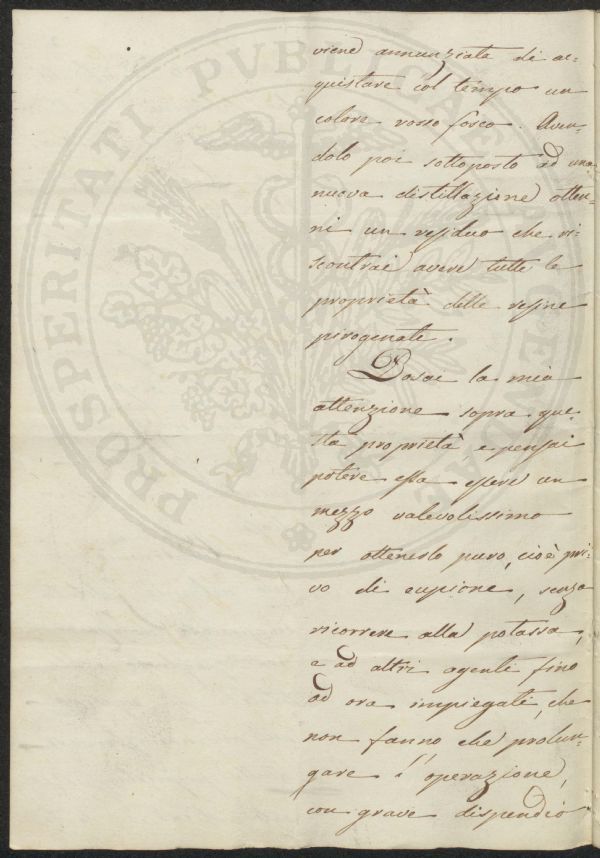 viene annunziata di ac-
quistare col tempo un
colore rosso fosco. Aven-
dolo poi sottoposto ad una
nuova distillazione otten-
ni un residuo che ri-
scontrai avere tutte le
proprietà delle resine
pirogenate.
Posai la mia
attenzione sopra que-
sta proprietà e pensai
potere essa essere un
mezzo valevolissimo
per ottenerlo puro, cioè pri-
vo di eupione, senza
ricorrere alla potassa,
e ad altri agenti fino
ad ora impiegati, che
non fanno che prolun-
gare l'operazione,
con grave dispendio